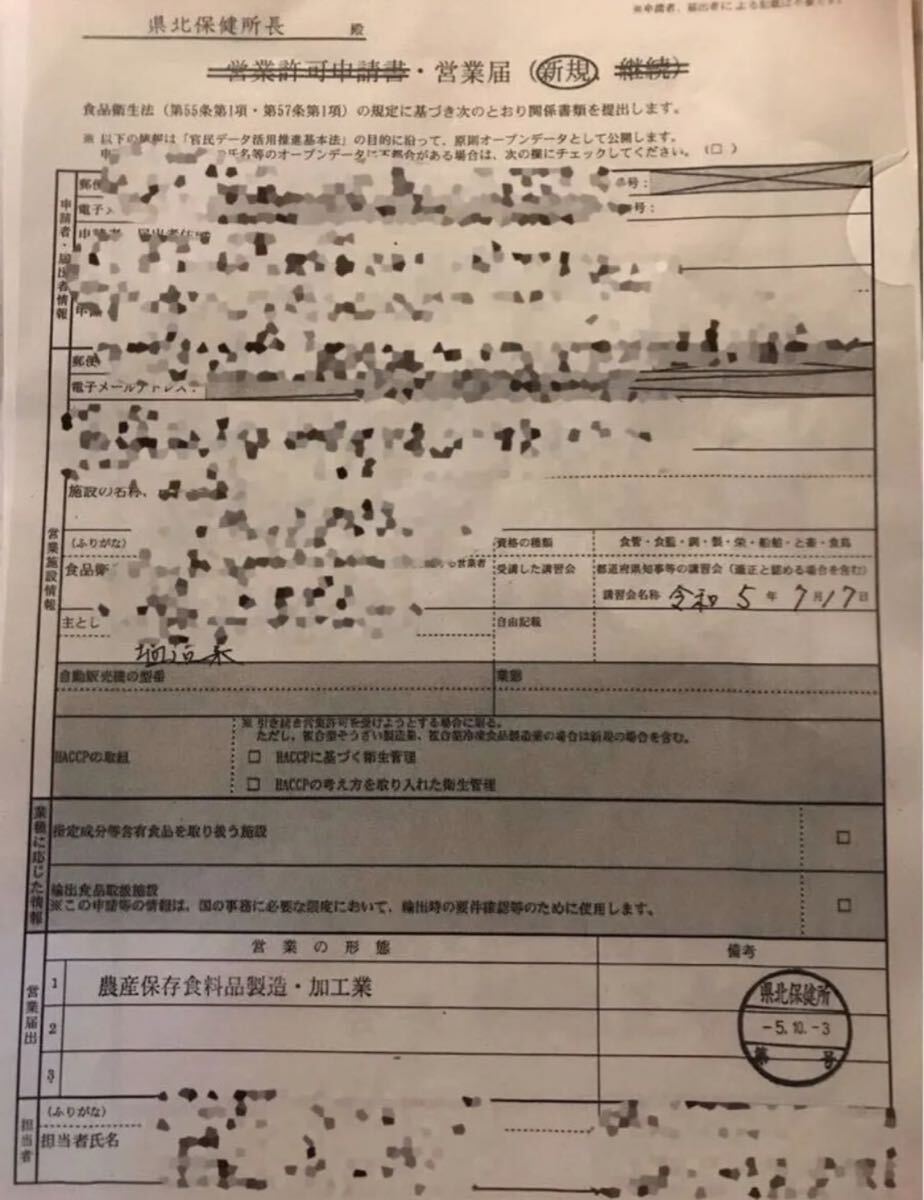 県北保健所長 殿
営業許可申請書・営業届(新規、継続)
食品衛生法(第55条第1項・第57条第1項)の規定に基づき次のとおり関係書類を提出します。
※ 以下の情報は「官民データ活用推進基本法」の目的に沿って、原則オープンデータとして公開します。
氏名等のオープンデータに不都合がある場合は、次の欄にチェックしてください。(□)
申請者・届出者情報
郵便
号:
電子メ
号:
郵便
電子メールアドレス:
営業施設情報
施設の名称、
(ふりがな)
資格の種類
食管・食監・調・製・栄・船舶・と畜・食鳥
食品衛
受講した講習会
都道府県知事等の講習会(適正と認める場合を含む)
講習会名称 令和 5 年 7 月 17 日
主とし
自由記載
自動販売機の型番
業態
HACCPの取組
※ 引き続き営業許可を受けようとする場合に限る。
ただし、複合型そうざい製造業、複合型冷凍食品製造業の場合は新規の場合を含む。
□ HACCPに基づく衛生管理
□ HACCPの考え方を取り入れた衛生管理
業種に応じた情報
指定成分等含有食品を取り扱う施設 □
輸出食品取扱施設
※この申請等の情報は、国の事務に必要な限度において、輸出時の要件確認等のために使用します。 □
営業届出
営業の形態
備考
1 農産保存食料品製造・加工業
2
3
県北保健所
-5.10.-3
第 号
担当者
(ふりがな)
担当者氏名